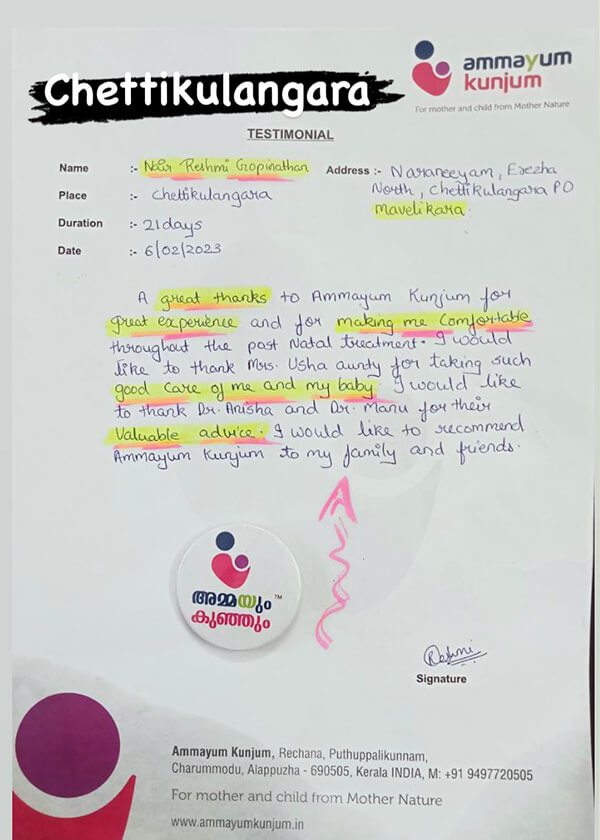 ammayum
kunjum
For mother and child from Mother Nature
Chettikulangara
TESTIMONIAL
Name :- Nair Reshmi Gopinathan
Address :- Naraneeyam, Erezha
North, Chettikulangara PO
Mavelikara.
Place :- Chettikulangara
Duration :- 21days
Date :- 6/02/2023
A great thanks to Ammayum Kunjum for
great experience and for making me Comfortable
throughout the past Natal treatment. I would
like to thank Mrs. Usha aunty for taking such
good care of me and my baby. I would like
to thank Dr. Anisha and Dr. Manu for their
Valuable advice. I would like to recommend
Ammayum Kunjum to my family and friends.
അമ്മയും TM
കുഞ്ഞും
Reshmi
Signature
Ammayum Kunjum, Rechana, Puthuppalikunnam,
Charummodu, Alappuzha - 690505, Kerala INDIA, M: +91 9497720505
For mother and child from Mother Nature
www.ammayumkunjum.in